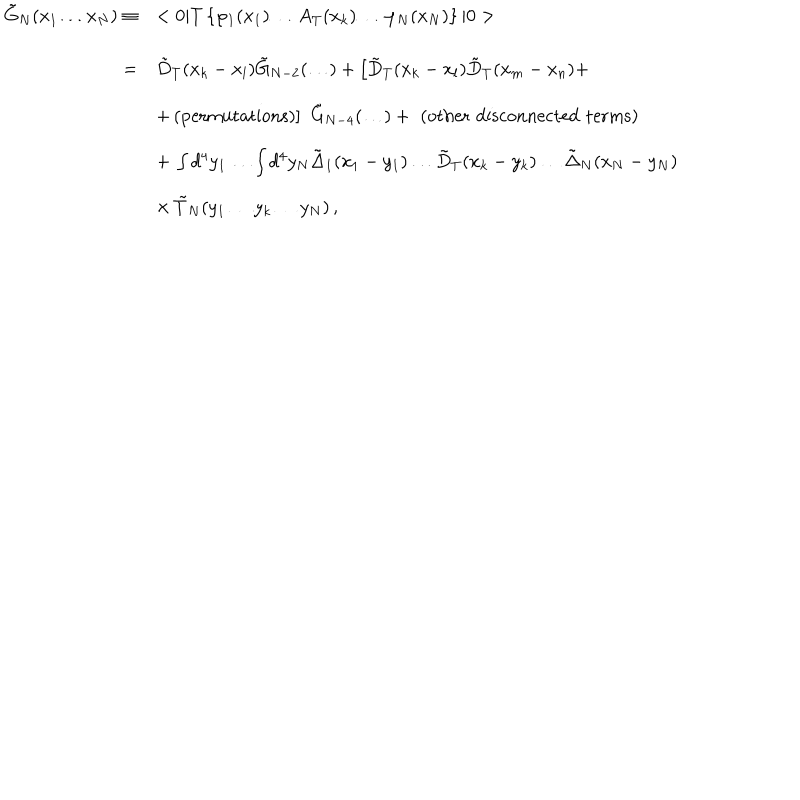 G̃_N(x_1 … x_N) ≡ < 0|T {φ_1(x_1) … A_T(x_k) … φ_N(x_N)} |0 >
= D̃_T(x_k − x_l)G̃_{N−2}(…) + [D̃_T(x_k − x_l)D̃_T(x_m − x_n)+
+ (permutations)] G̃_{N−4}(…) + (other disconnected terms)
+ ∫ d^4y_1 … ∫ d^4y_N Δ̃_1(x_1 − y_1) … D̃_T(x_k − y_k) … Δ̃_N(x_N − y_N)
× T̃_N(y_1 … y_k … y_N) ,